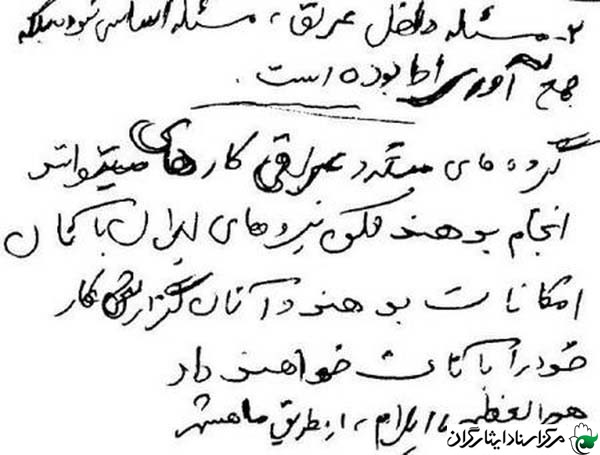 ۲- مسئله داخل عراق، مسئله اساسی نبوده بلکه
جمع آوری اطلا بوده است.
گروه های مستقر عراقی کار های میتوانند
انجام بدهند ممکن نیروهای ایران با آنان
امکانات بدهند و آنان گزارش کار
خود را با آنان خواهند داد
هورالعظیم، ایلام، از طریق ماهشهر
مرکز اسناد ایثارگران